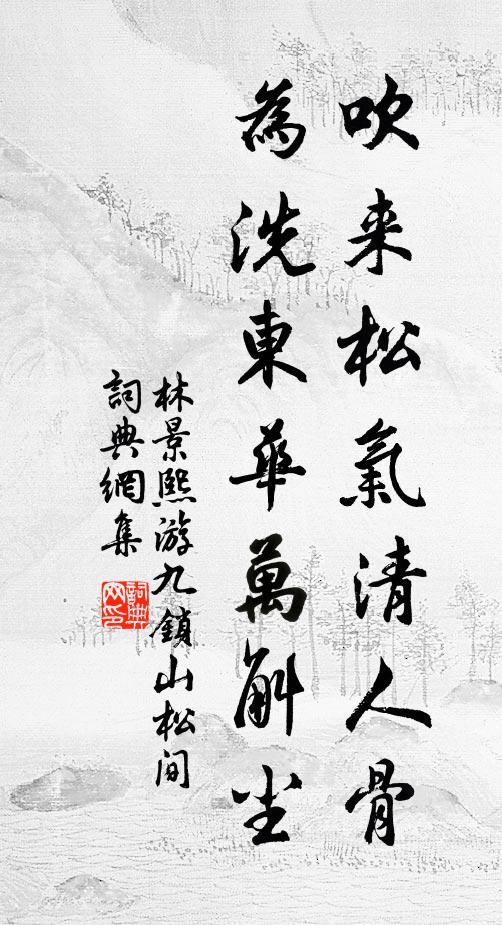 吹来松氣清人骨
為洗東華萬斛尘
林景熙游九鎖山松间
詞典網集
詞典
网印